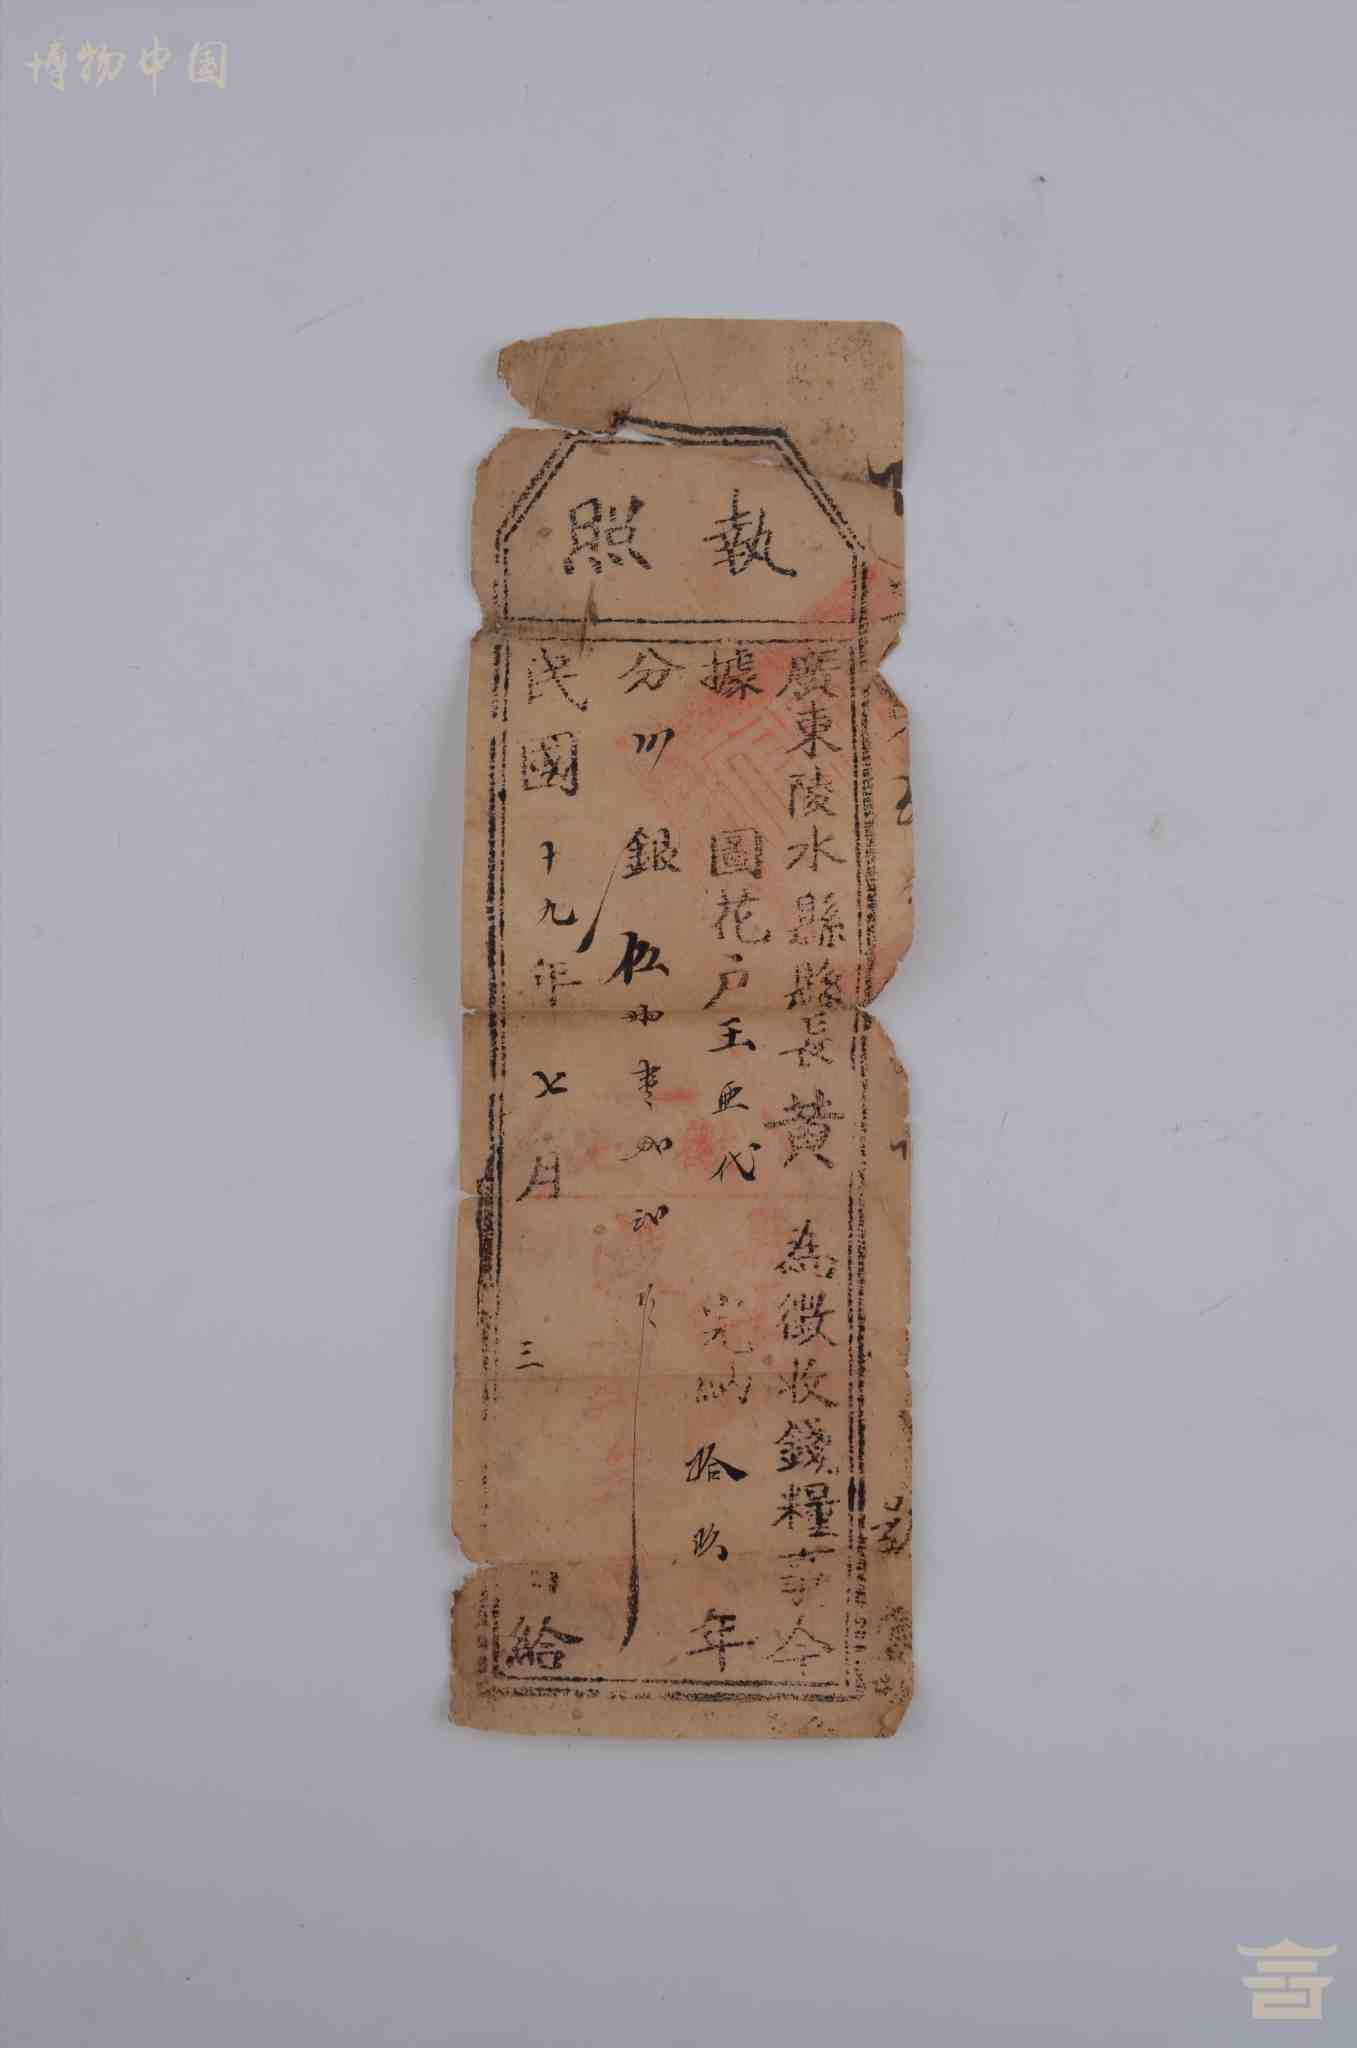 博物中国
執照
廣東陵水縣縣長黃 為徵收錢糧事今
據 圖花戶王亞代 完納拾玖年
分 銀伍
民國十九年七月 三 日給